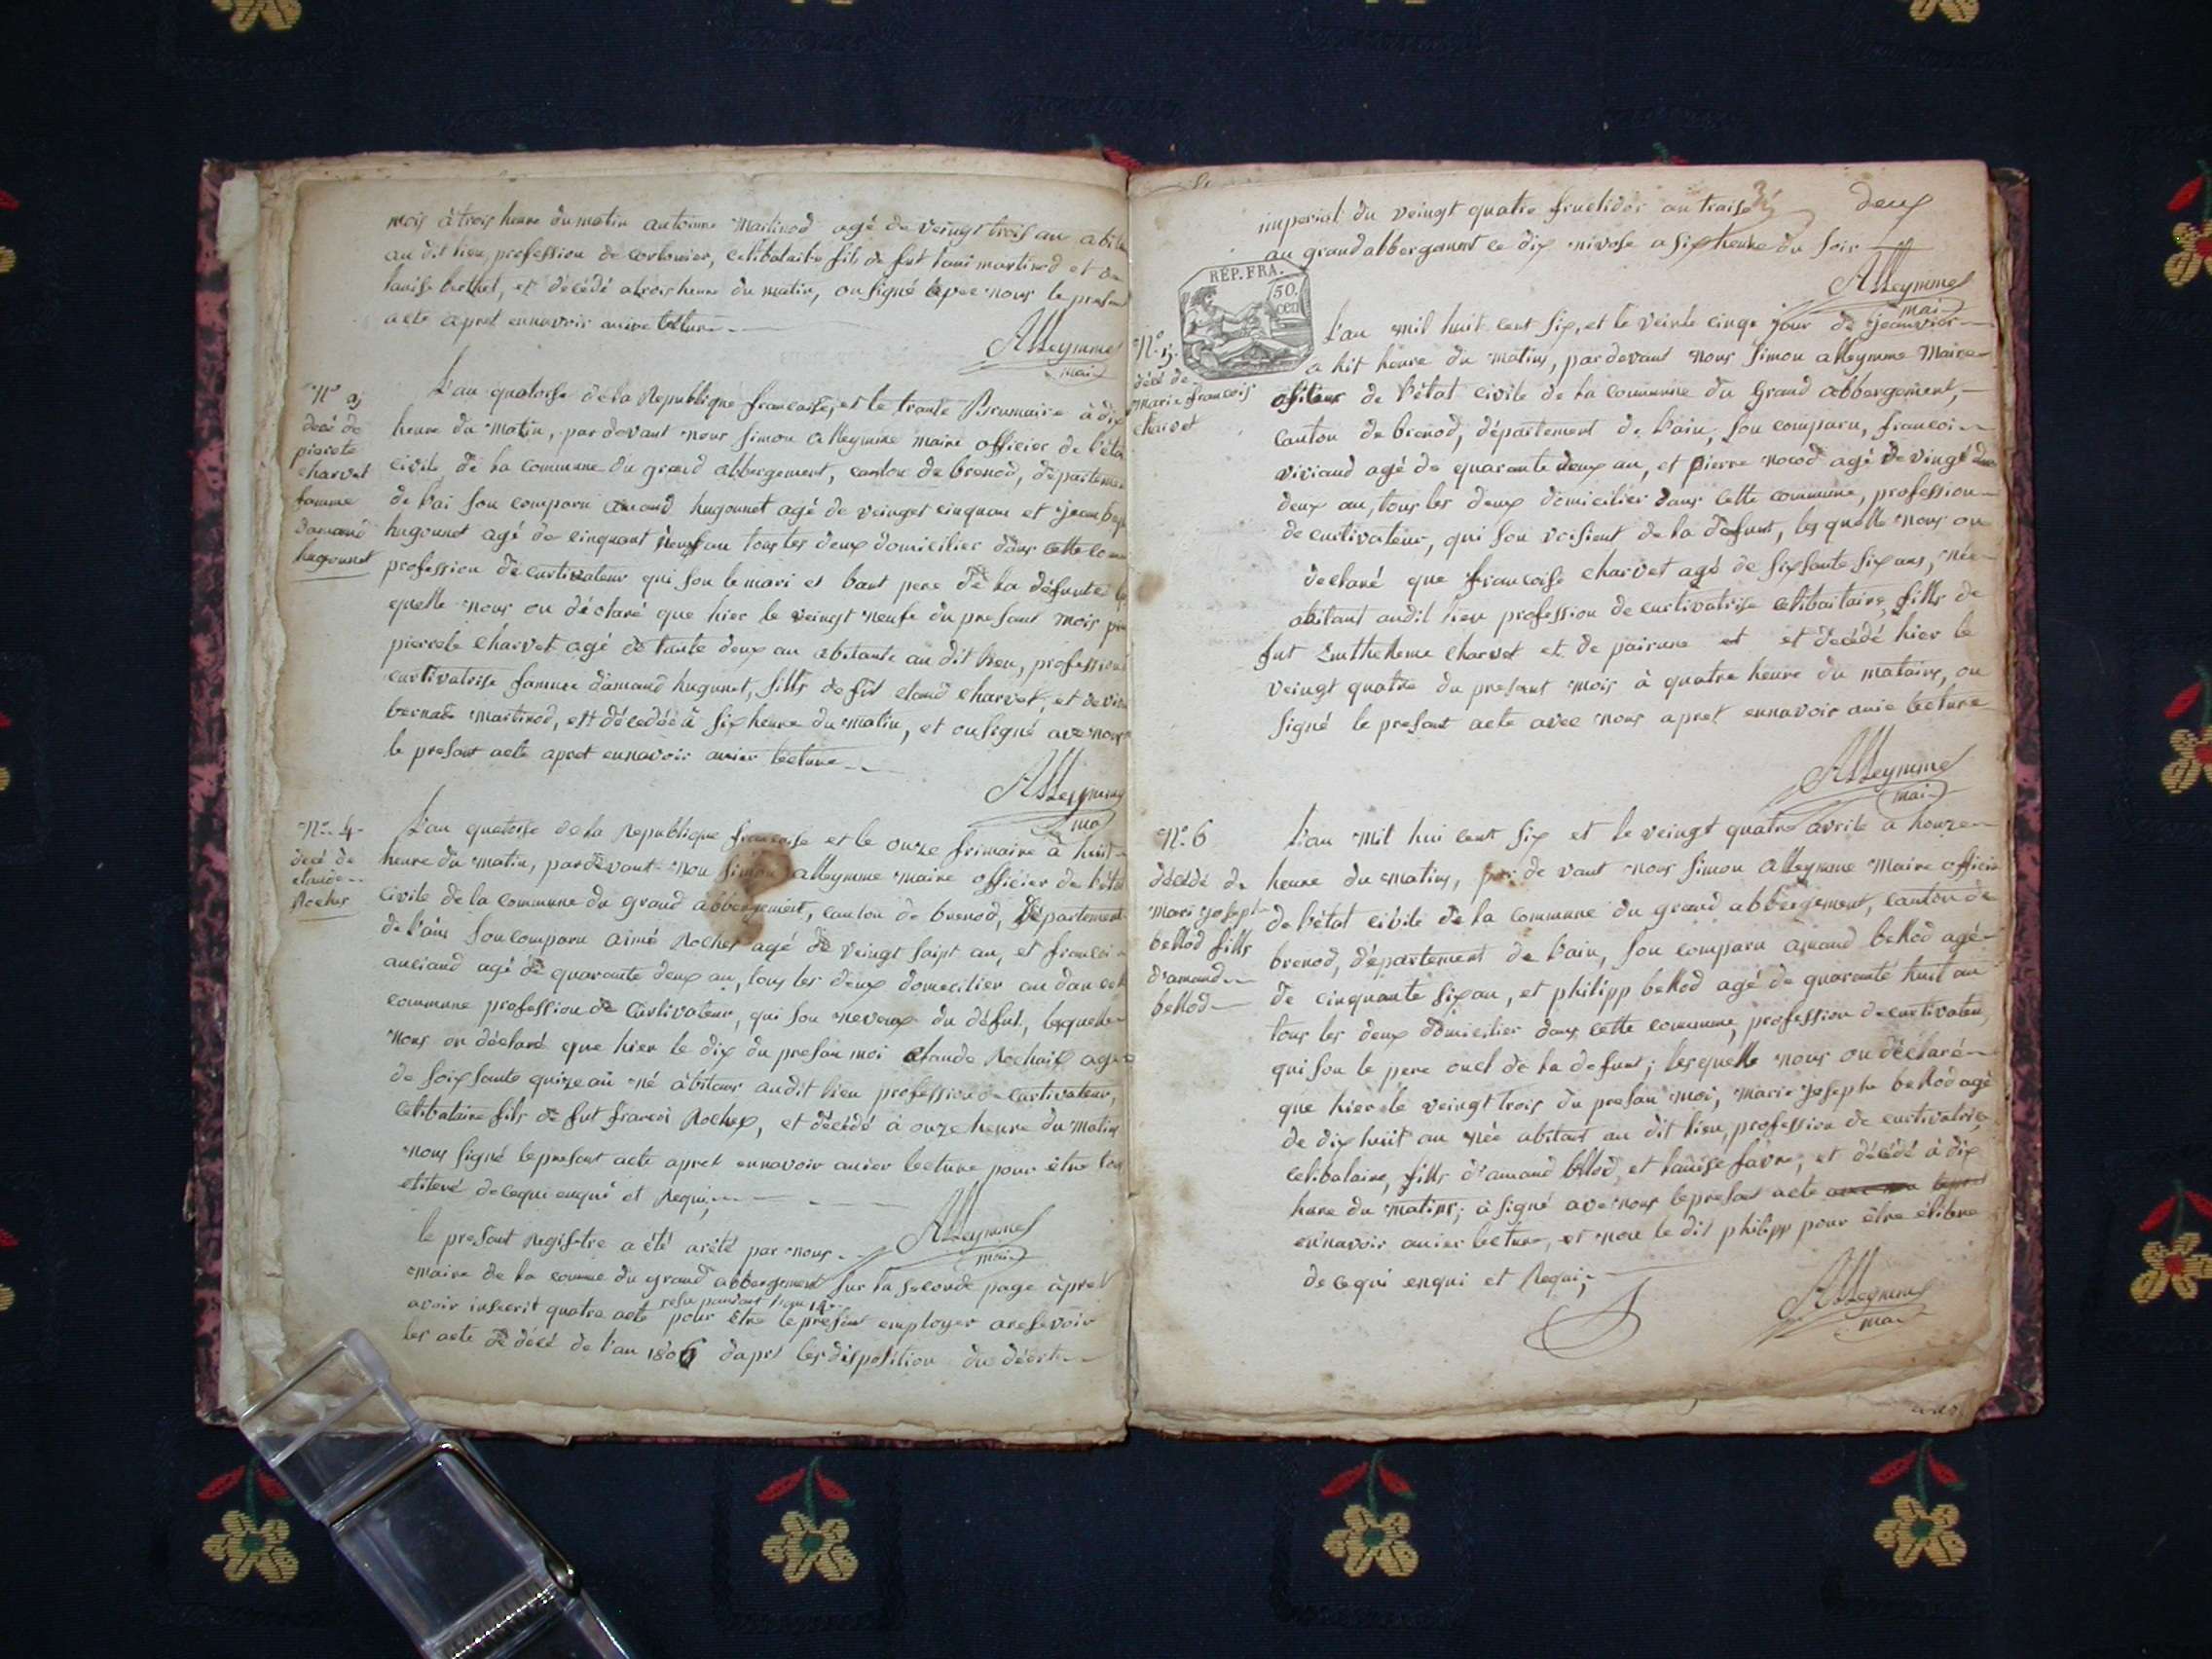 mois à trois heure du matin antoinne Martinod agé de veingt trois an
au dit lieu profession de cordonier, celibataire fils de fut martinod et
et décédé a trois heure du matin, on signé avec nous le presant
acte apret ennavoir
Alleymme
mai
N° 3
decé de
pierete
charvet
famme
damand
hugonnet
L'an quatorse de la Republique francaise, et le trante Brumaire à dix
heure du matin, par devant nous simon alleymme maire officier de l'éta
civile de la commune du grand abbergement, canton de brenod, département
de l'ai son comparu amand hugonnet agé de veinget cinquan et jean
hugonnet agé de cinquant neuf an tous les deux domicilier dans cette
profession de curtivateur qui son le mari et baut pere de la défunte
quelle nous on déclaré que hier le veingt neufe du presant mois
pierrete charvet agé de tante deux an abitante au dit lieu, profession
curtivatrise famme damand hugonet, fills de fut claud charvet, et de
bernade martinod, est décedée à six heure du matin, et on signé avec nous
le presant acte apret ennavoir lecture
Alleymme
N° 4
decé de
claude
Rochex
L'an quatorse de la Republique francaise et le onze frimaire à huit
heure du matin, pardevant nou simon alleymme maire officier de l'état
civile de la commune du grand abbergement, canton de brenod, Département
de l'ain son comparu aimé Rochex agé de veingt saipt an, et francoi
anciand agé de quarante deux an, tous les deux domicilier
commune profession de Curtivateur, qui son neveux du défut, lesquelle
nous on déclaré que hier le dix du presan moi claude Rochaix agé
de soixsante quinze an né abitant audit lieu profession de curtivateur,
celibataire fils de fut francoi Rochex, et décédé à onze heure du matin
nous signé le presant acte apret ennavoir lecture pour être
de cequi enqui et Requi
le presant Registre a été arété par nous
Alleymme
mai
maire de la comme du grand abbergement sur la seconde page àpret
avoir inscrit quatre acte pour être le presant employer a resevoir
les acte de décé de l'an 1806 dapré les disposition du décret
deux
imperial du veingt quatre fructidor an traise
au grand abbergement ce dix nivose a six heure du soir
Alleymme
mai
RÉP. FRA.
50 cen
N° 5
decé de
marie francois
charvet
L'an mil huit cent six, et le veinte cinqe jour de jeanvier
a hit heure du matin, par devant nous simon alleymme Maire
de l'état civile de la commune du Grand abbergement,
Canton de brenod, département de l'ain, son comparu, francoi
viviand agé de quarante deux an, et pierre agé de vingt
deux an, tous les deux domicilier dans cette commune, profession
de curtivateur, qui son voisient de la defunt, les quelle nous on
declaré que francoise charvet agé de sixsante six ans, née
abitant audit lieu profession de curtivatrise celibaitaire, fills de
fut charvet et de et décédé hier le
veingt quatre du presant mois à quatre heure du mataint, on
signé le presant acte avec nous apret ennavoir lecture
Alleymme
mai
N° 6
décédé de
mari joseph
bellod fills
d'amand
bellod
L'an mil hui cent six et le veingt quatre avrile a honze
heure du matin, par de vant nous simon alleymme maire officie
de l'état civile de la commune du grand abbergement, canton de
brenod, département de l'ain, son comparu amand bellod agé
de cinquante six an, et philipp bellod agé de quaranté huit an
tous les deux domicilier dans cette commune, profession de curtivateur
qui son le pere oncl de la defunt; lesquelle nous on déclaré
que hier le veingt trois du presan moi, marie josephe bellod agé
de dix huit an née abitant au dit lieu, profession de curtivatrise
celibataire, fills d'amand bellod, et favre, et décédé à dix
heure du matin; à signé avec nous le presant acte
ennavoir lecture, et non le dit philipp pour être élitere
de cequi enqui et Requi;
Alleymme
mai